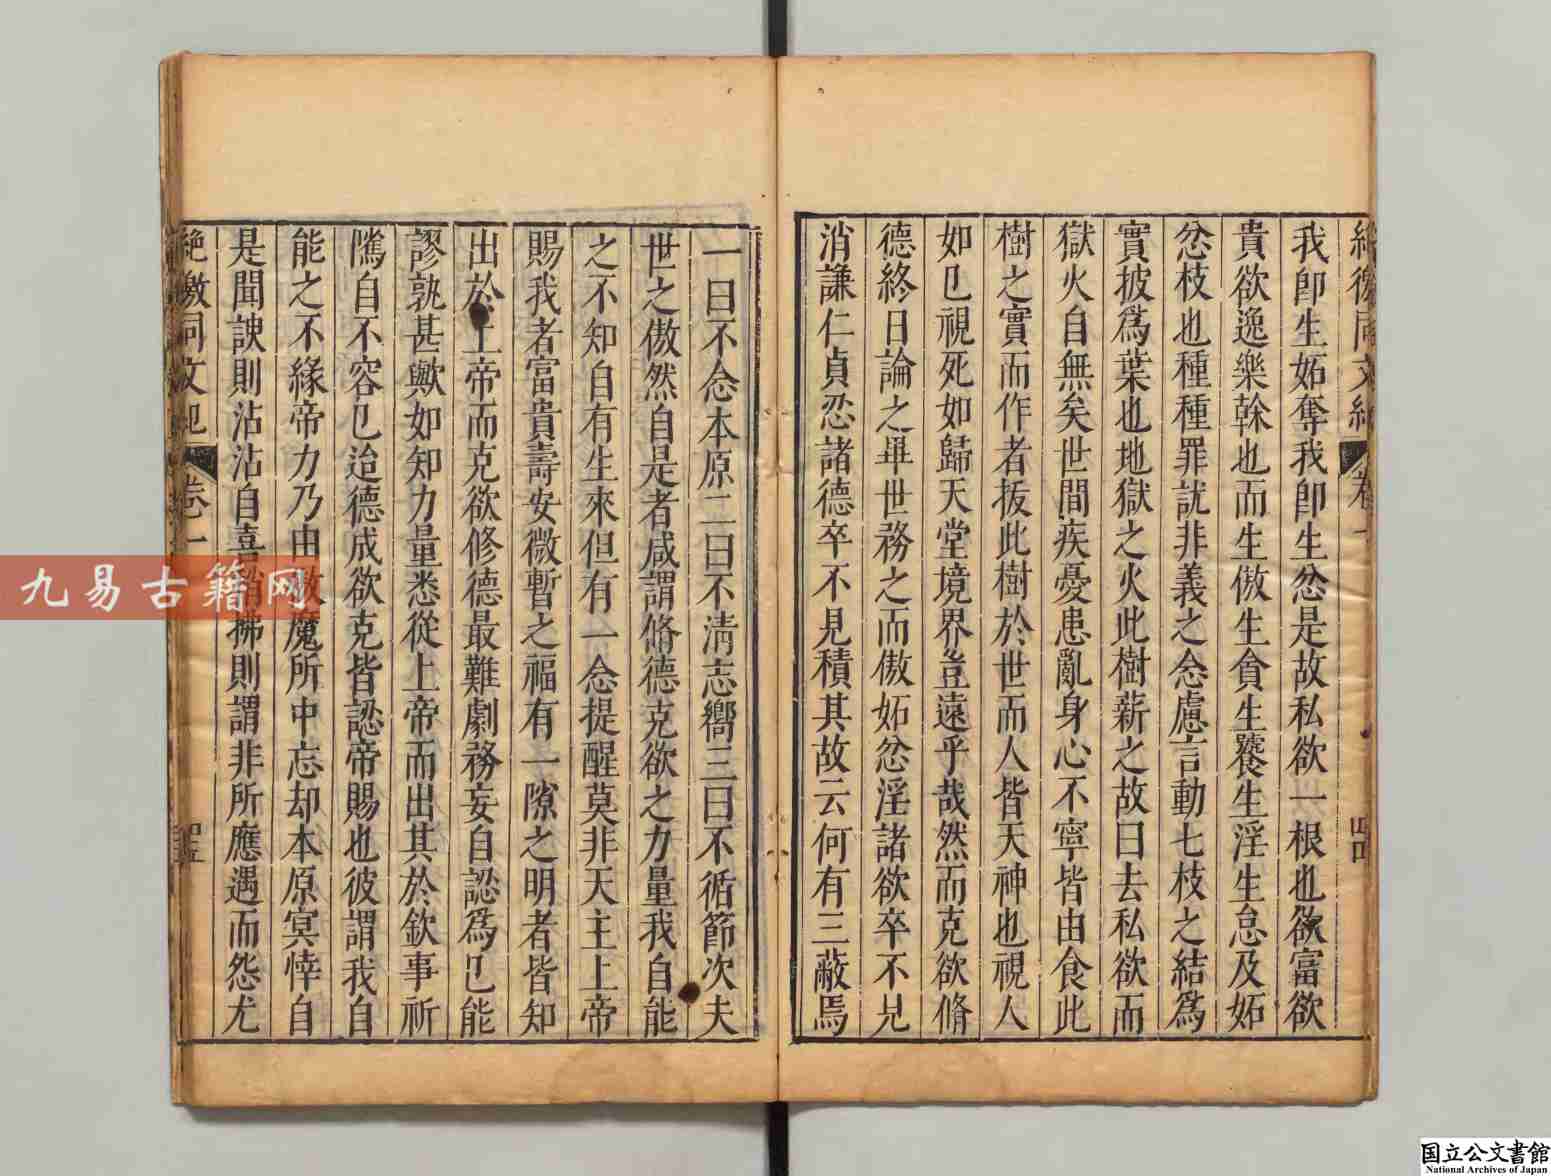 我即生妬奪我即生忿是故私欲一根也欲富欲
貴欲逸樂榦也而生傲生貪生饕生淫生怠及妬
忿枝也種種罪訧非義之念慮言動七枝之結爲
實披爲葉也地獄之火此樹薪之故曰去私欲而
獄火自無矣世間疾憂患亂身心不寧皆由食此
樹之實而作者拔此樹於世而人皆天神也視人
如已視死如歸天堂境界豈遠乎哉然而克欲脩
德終日論之畢世務之而傲妬忿淫諸欲卒不見
消謙仁貞忍諸德卒不見積其故云何有三蔽焉
一曰不念本原二曰不清志嚮三曰不循節次夫
世之傲然自是者咸謂脩德克欲之力量我自能
之不知自有生來但有一念提醒莫非天主上帝
賜我者富貴壽安微暫之福有一隙之明者皆知
出於上帝而克欲修德最難劇務妄自認爲已能
謬孰甚歟如知力量悉從上帝而出其於欽事祈
隲自不容已迨德成欲克皆認帝賜也彼謂我自
能之不緣帝力乃由傲魔所中忘却本原冥悻自
是聞諛則沾沾自喜拂則謂非所應遇而怨尤
絶徼同文紀 卷一
九易古籍网
国立公文書館
National Archives of Japan